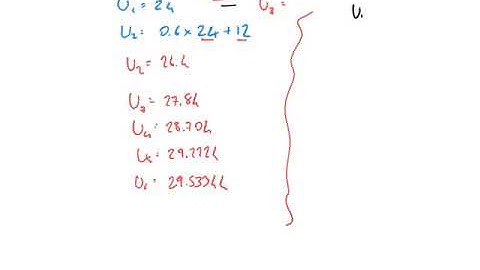 U₁ = 24
U₃ =
U.
U₂ = 0.6 × 24 + 12
U₂ = 26.4
U₃ = 27.84
U₄ = 28.704
U₅ = 29.2224
U₆ = 29.53344